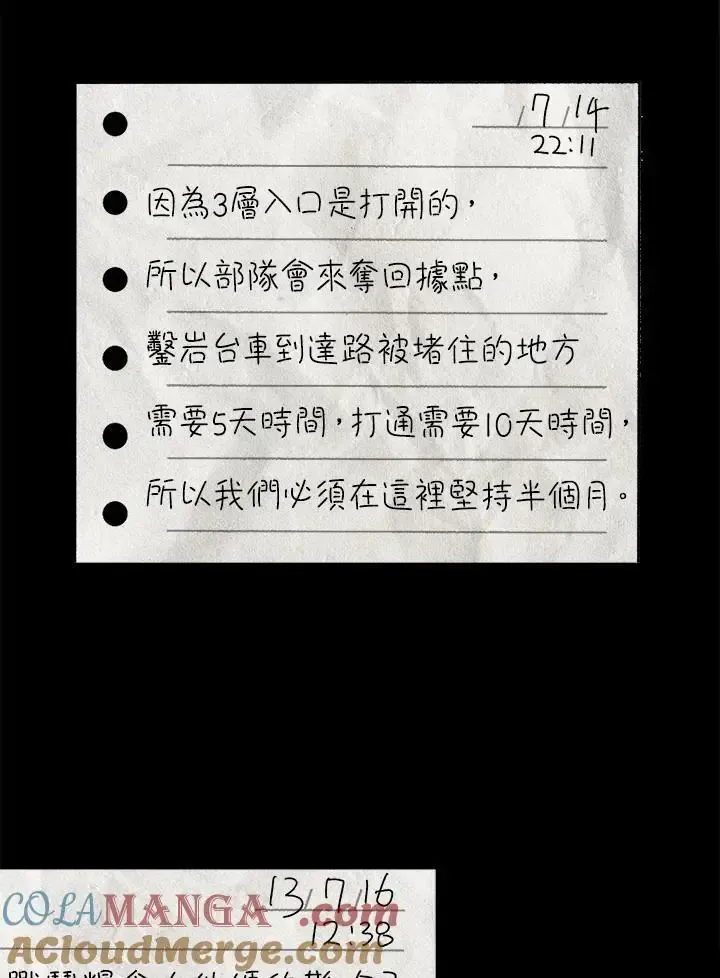 /7/14
22:11
因為3層入口是打開的，
所以部隊會來奪回據點，
鑿岩台車到達路被堵住的地方
需要5天時間，打通需要10天時間，
所以我們必須在這裡堅持半個月。
13/7/16
COLAMANGA.com
12:38
AcloudMerge.com